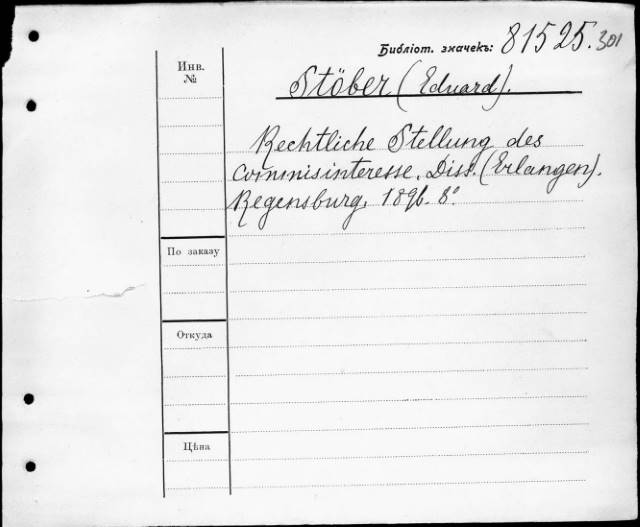 Библіот. значекъ: 81525.301
Инв. №
Stöber (Eduard).
Rechtliche Stellung des
Commisinteresse. Diss. (Erlangen).
Regensburg. 1896. 8º.
По заказу
Откуда
Цѣна